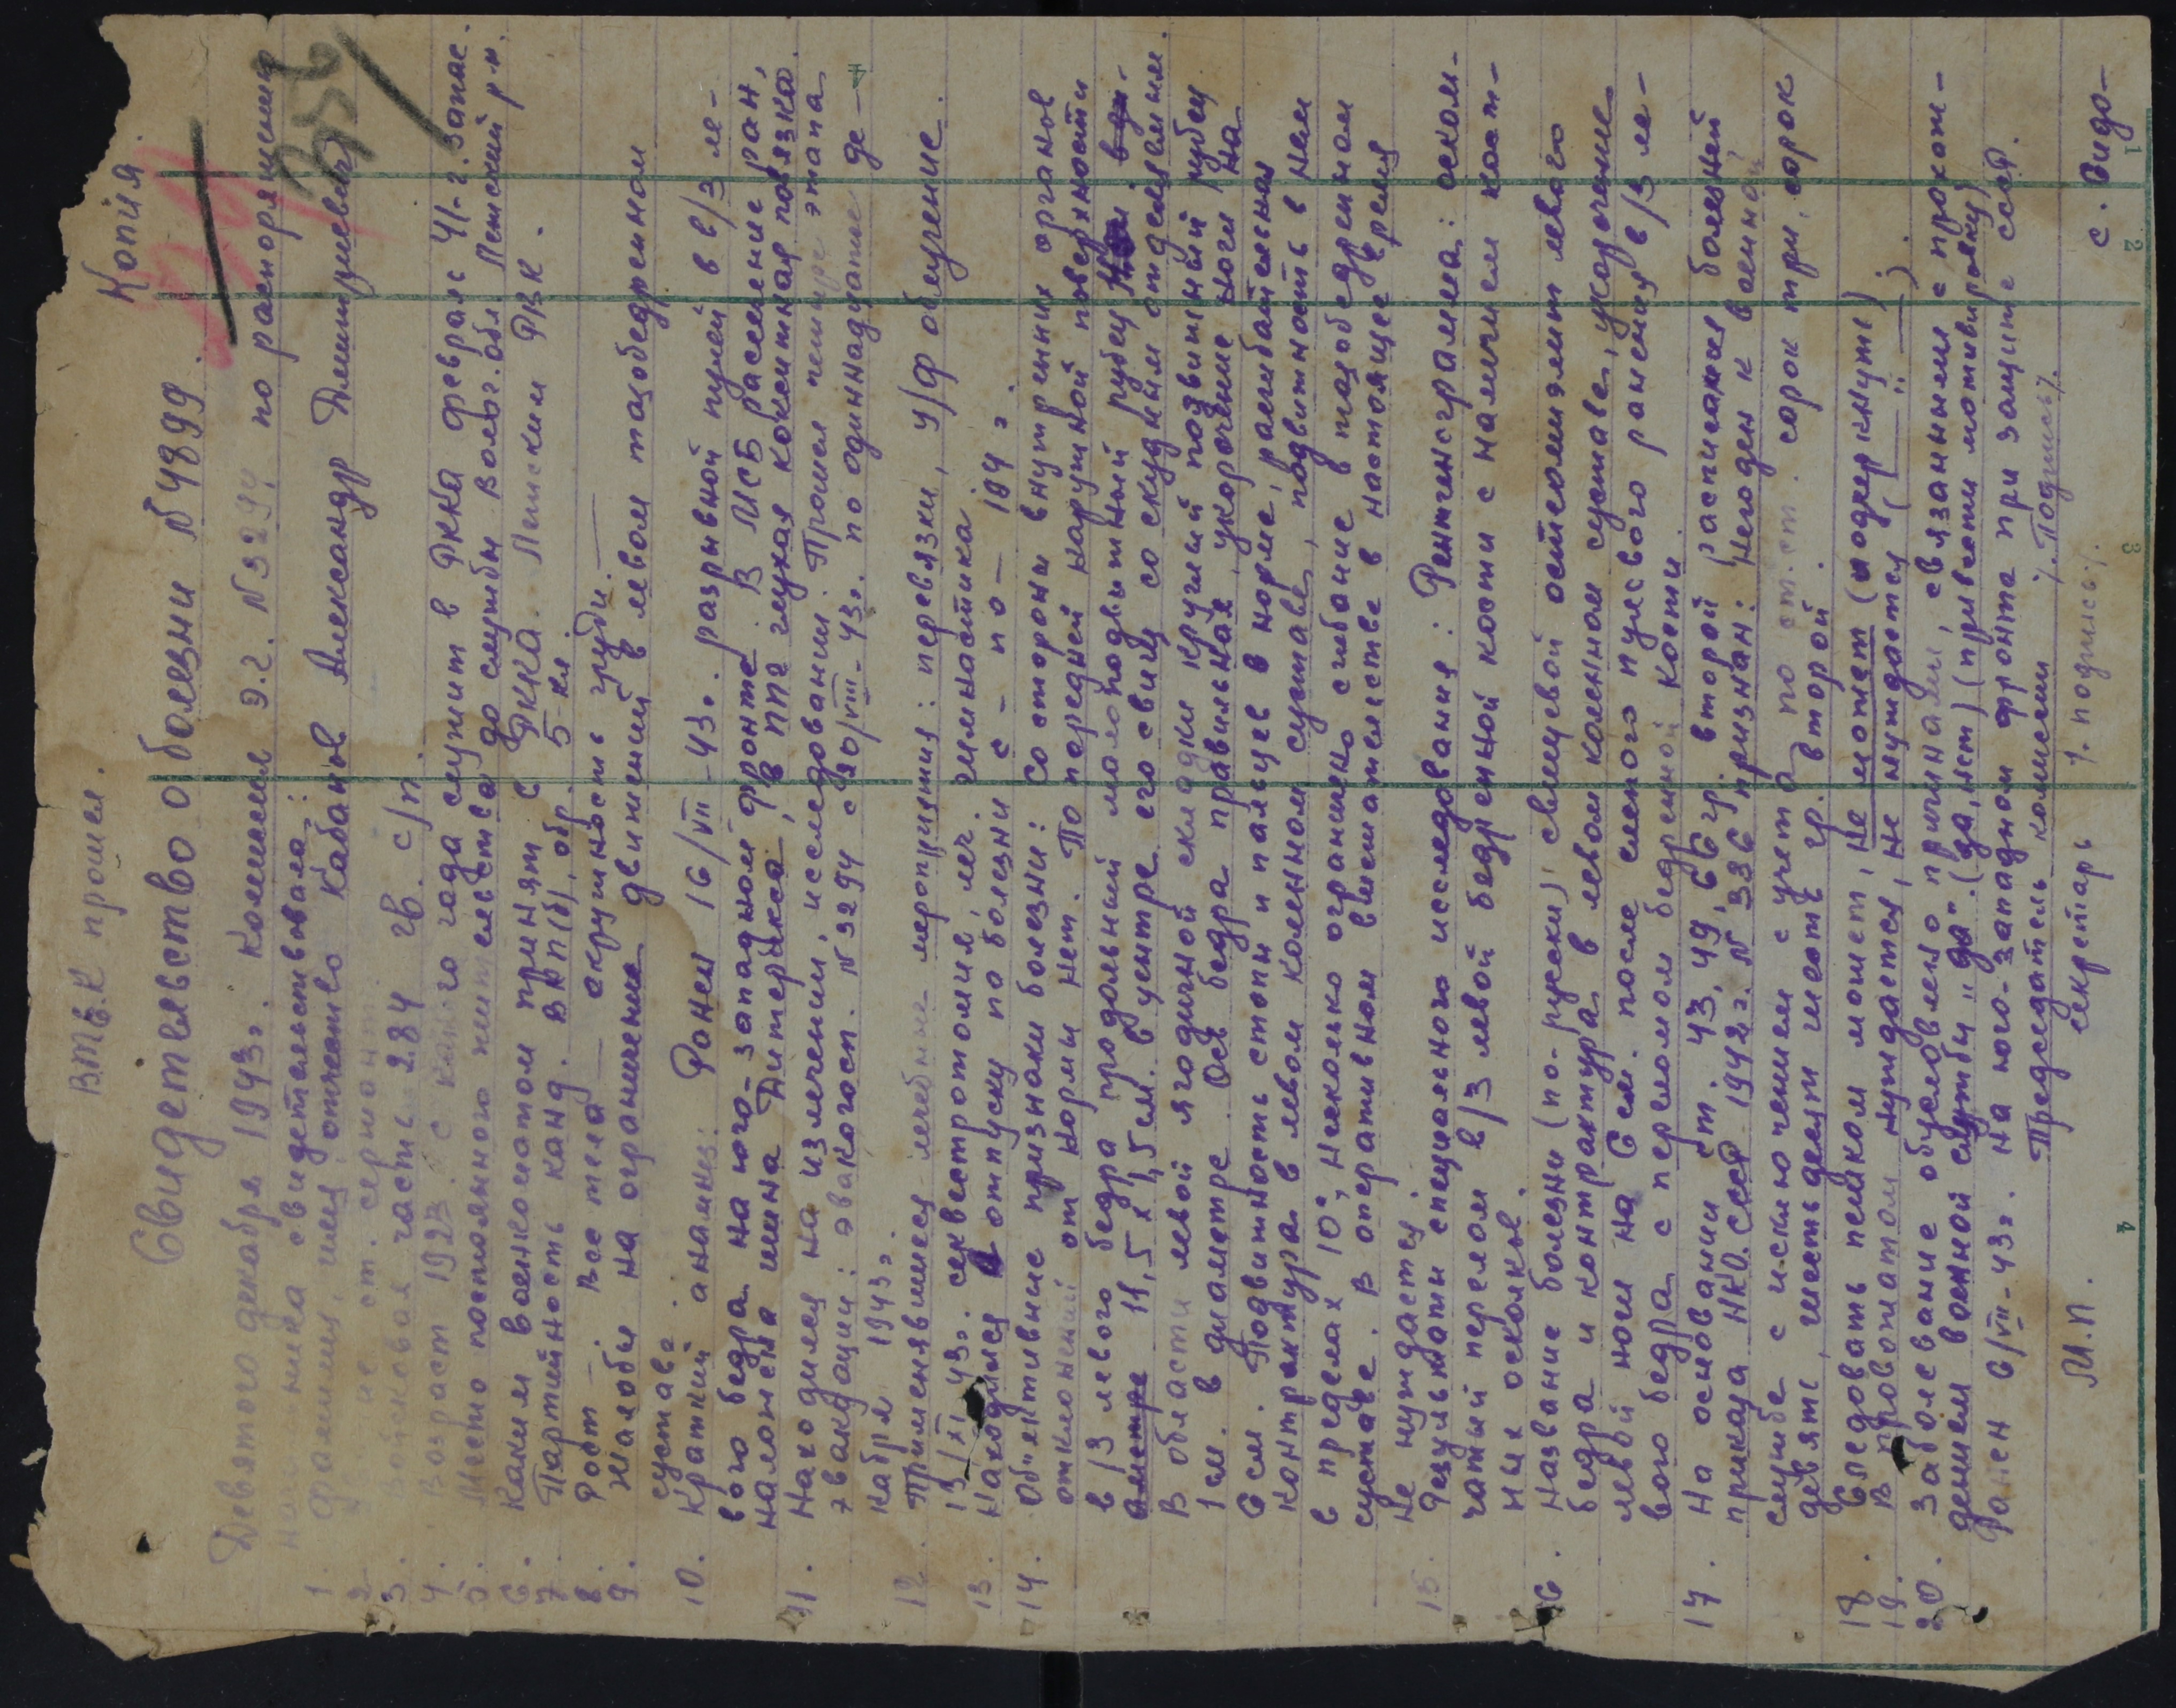 Копия.
ВТЭК прошел.
356
Свидетельство о болезни №4899.
Девятого декабря 1943г. Комиссия э.г. №3294 по распоряжению
начальника свидетельствовала:
1. Фамилия, имя, отчество Кабанов Александр Дмитриевич
2. ст. сержант.
3. Войсковая часть 284 гв. с/п.
4. Возраст 1923. С какого года служит в РККА февраль 41-г. Запас.
5. Место постоянного жительства до службы Волог. обл. Ленский р-н.
6. Каким военкоматом принят в РККА. Ленским РВК.
7. Партийность канд. ВКП(б), обр. 5-кл.
8. Рост — Вес тела — окружность груди. —
9. Жалобы на ограничение движений в левом тазобедренном
суставе.
10. Краткий анамнез: Ранен 16/VII-43г. разрывной пулей в в/3 ле-
вого бедра на юго-западном фронте. В МСБ рассечение ран,
наложена шина Дитерихса, в ППГ глухая кокситная повязка.
11. Находился на излечении, исследовании. Прошел четыре этапа
эвакуации: эвакогосп. №3294 с 20/VIII-43г. по одиннадцатое де-
кабря 1943г.
12. Применявшиеся лечебные мероприятия: перевязки, у/ф облучение.
13/XI 43г. секвестротомия, леч. гимнастика.
13. Находился в отпуску по болезни с - по - 194 г.
14. Объективные признаки болезни: Со стороны внутренних органов
отклонений от нормы нет. По передней наружной поверхности
в/3 левого бедра продольный малоподвижный рубец
аметре 11,5 х 1,5 см. в центре его свищ со скудным отделяемым.
В области левой ягодичной складки круглый подвижный рубец
1 см. в диаметре. Ось бедра правильная, укорочение ноги на
6 см. Подвижность стопы и пальцев в норме, разгибательная
контрактура в левом коленном суставе, подвижность в нем
в пределах 10°, несколько ограничено сгибание в тазобедренном
суставе. В оперативном вмешательстве в настоящее время
не нуждается.
15. Результаты специального исследования: Рентгенограмма: оскол-
чатый перелом в/3 левой бедренной кости с наличием кост-
ных осколков.
16. Название болезни (по-русски) свищевой остеомиэлит левого
бедра и контрактура в левом коленном суставе, укорочение
левой ноги на 6 см. после слепого пулевого ранения в/3 ле-
вого бедра с переломом бедренной кости.
17. На основании ст. 43, 49, 66 гр. второй расписания болезней
приказа НКО. СССР 1942 г. № 336 признан: Негоден к военной
службе с исключением с учета по ст. ст. сорок три, сорок
девять, шестьдесят шесть гр. второй.
18. Следовать пешком может, не может (подчеркнуть)
19. В провожатом нуждается, не нуждается ( —"— ).
20. Заболевание обусловлено причинами, связанными с прохож-
дением военной службы „да". (да, нет) (привести мотивировку)
Ранен 6/VII-43г. на юго-западном фронта при защите СССР.
Председатель комиссии /. Подпись/.
секретарь /. подпись/.
М.П.
с. Видо-